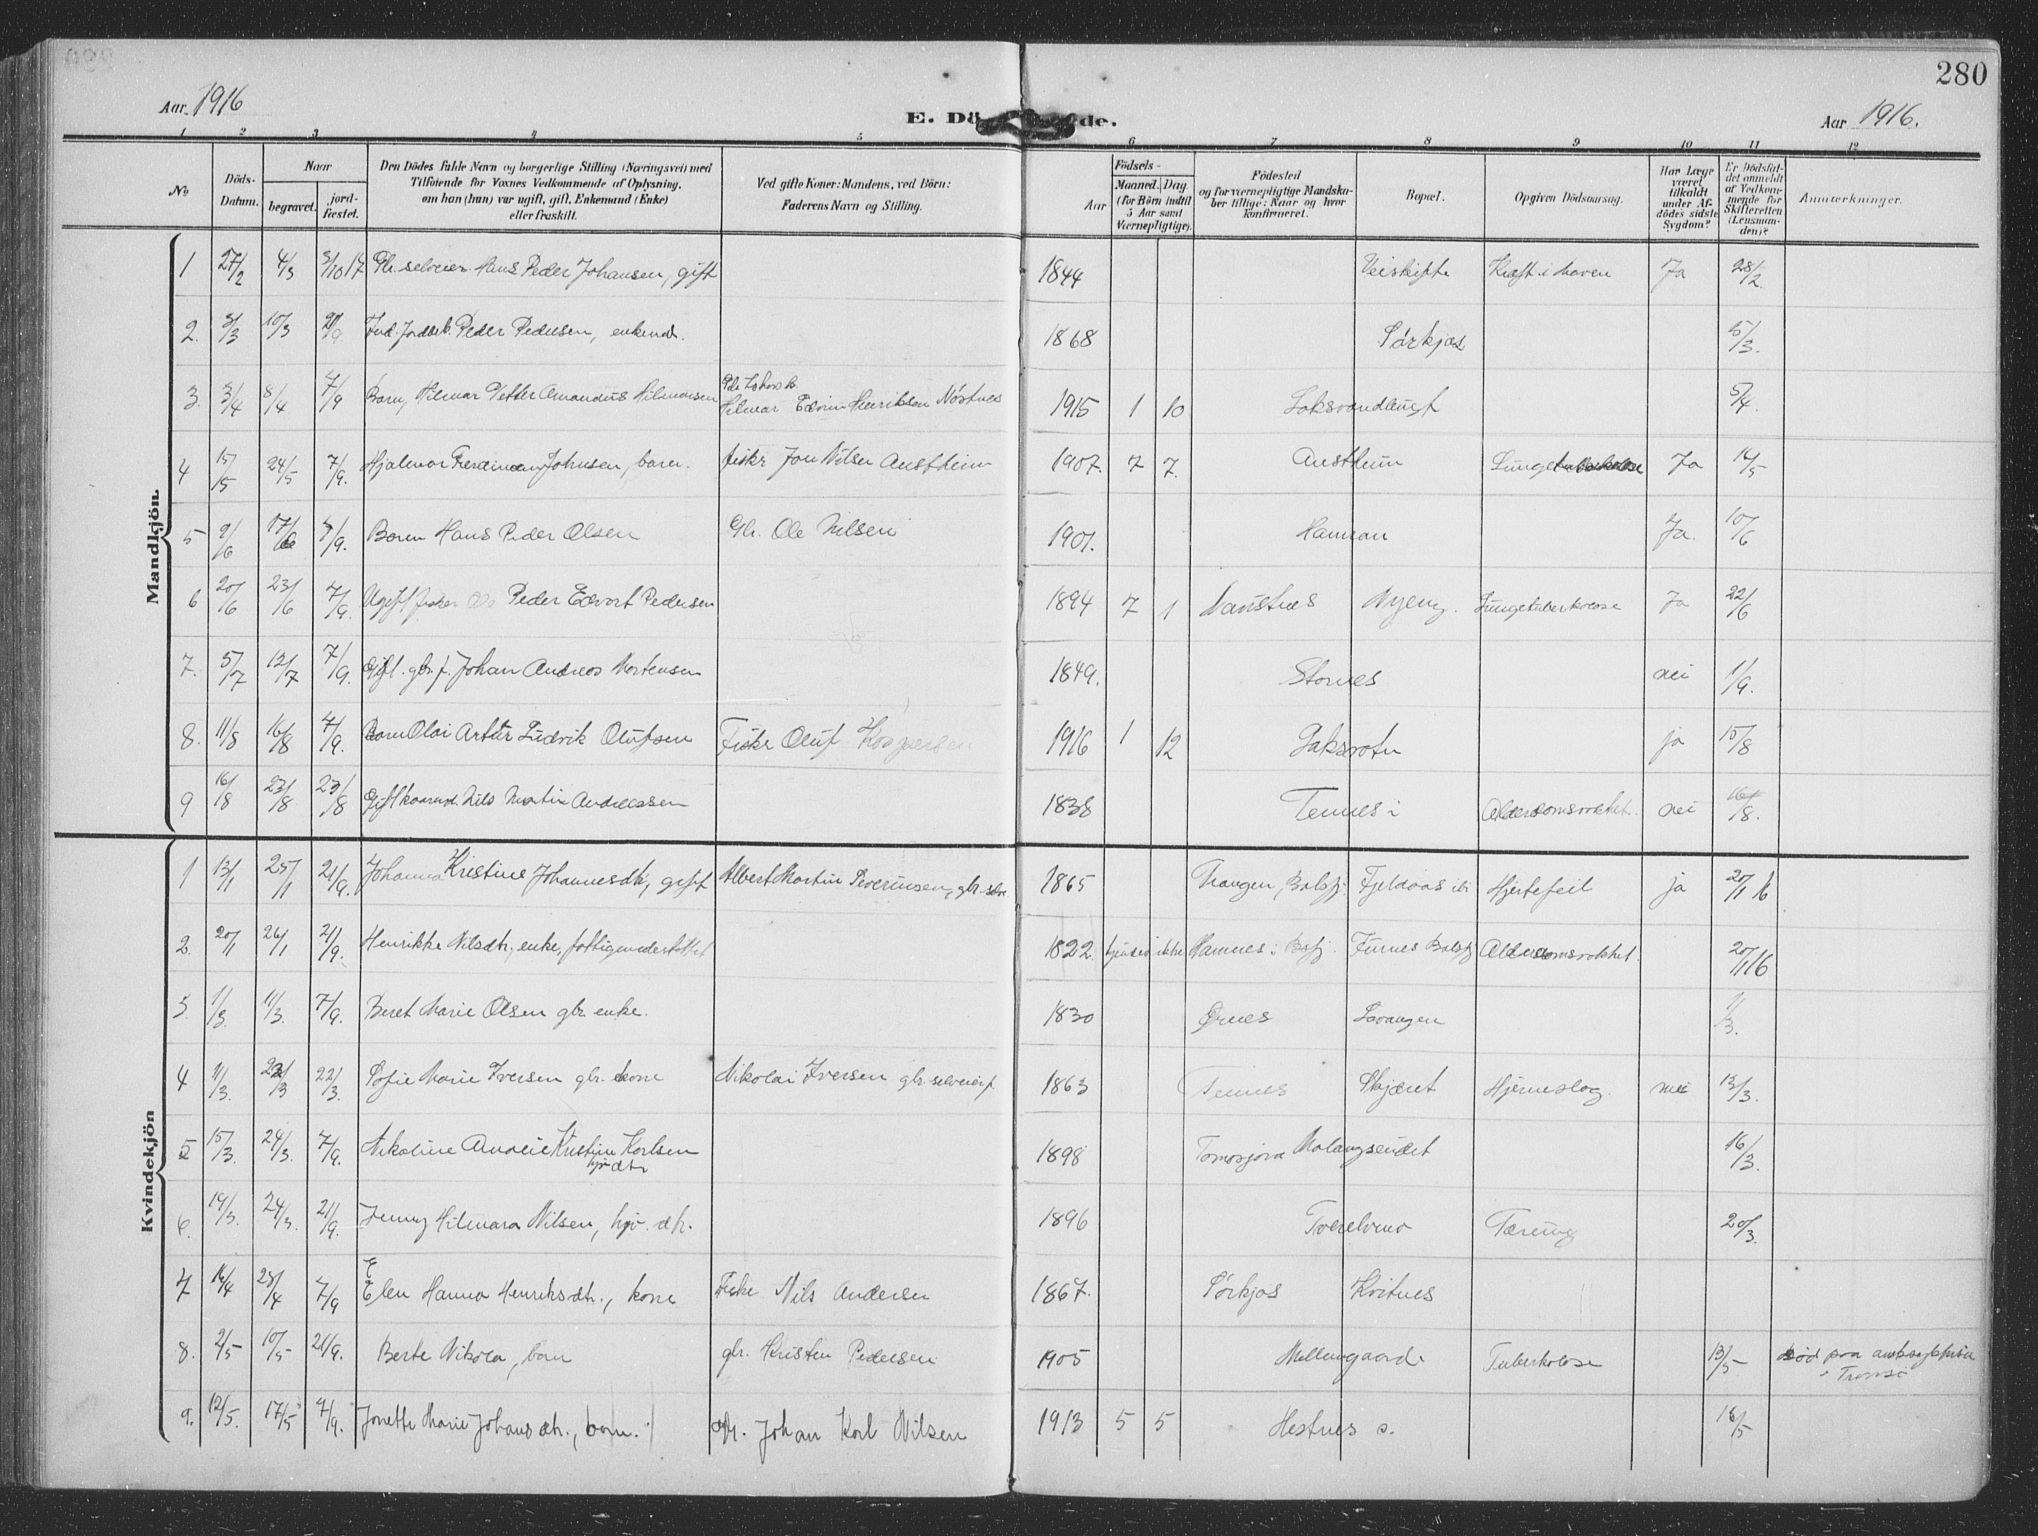 280
Aar 1916
E. Dö de.
Aar 1916.
1 2 3 4 5 6 7 8 9 10 11 12
No
Döds-Datum.
Naar
begravet.
jord-fæstet.
Den Dödes fulde Navn og borgerlige Stilling (Næringsvei) med
Tilföiende for Voxnes Vedkommende af Oplysning,
om han (hun) var ugift, gift, Enkemand (Enke)
eller fraskilt.
Ved gifte Koner: Mandens, ved Börn:
Faderens Navn og Stilling.
Födsels-
Aar
Maaned. Dag
(for Börn indtil
5 Aar samt
Værnepligtige).
Födested
og for værnepligtige Mandska-
ber tillige: Naar og hvor
konfirmeret.
Bopæl.
Opgiven Dödsaarsag.
Har Læge
været
tilkaldt
under Af-
dödes sidste
Sygdom?
Er Dödsfal-
det anmeldt
af Vedkom-
mende for
Skifteretten
(Lensman-
den)?
Anmærkninger.
Mandkjön.
1 27/2 4/3 3/10 17 Gbr. selveier Hans Peder Johansen, gift 1844 Veiskifte Kræft i Maven Ja 28/2
2. 3/3 10/3 Peder Pedersen, enkem. 1868 Sørkjos 5/3.
3. 3/4 8/4 7/9 Barn, Hilmar Petter Amandus Hilmarsen Hilmar Edvin Henriksen Nøstnes 1915 1 10 Laksvandbugt 5/4.
4 15/5 24/5 7/9. Hjalmar Ferdinan Johnsen, barn. fisker Jon Nilsen Austheim 1907. 7 7. Austheim Lungetuberkolose Ja 14/5
5 9/6 17/6 7/9. Baren Hans Peder Olsen Gbr. Ole Nilsen 1901. Hamran Ja. 10/6
6 20/6 23/6 7/9. Ugift fisker Peder Edvart Pedersen 1894 7 1 Nyeng. Lungetuberkolose Ja 22/6
7. 5/7 12/7 7/9. Gift. gbr. f. Johan Andreas Mortensen 1849. Stornes nei 1/9.
8. 11/8 16/8 7/9. Barn Olai Artur Ludvik Olufsen Fisker Oluf 1916 1 12 Laksvatn ja 15/8
9 16/8 23/8 23/8 Gift Nils Martin Andreassen 1838 Tennes i Alderdomsvakhet. nei 16/8.
Kvindekjön
1 13/1 25/1 21/9. Johanna Kristine Johannesdtr, gift Albert Martin Severinsen, gbr. selv. 1865 Balsfj. Fjeldaas ibi Hjertefeil ja 20/1 16
2. 20/1 26/1 21/9. Henrikke Nilsdtr, enke, fattigunderstøttet 1822. ikke Hamnes i Bafj. Furnes Balsfj Alderdomsvakhet. 20/1 16
3. 1/3 11/3. 7/9. Beret Marie Olsen gbr. enke. 1830 Ørnes Lavangen 1/3.
4 1/3. 22/3 22/3. Sofie Marie Iversen gbr. kone Nikolai Iversen gbr. selveier f 1863 Tennes Skjæret Hjerneslag. nei 13/3.
5 15/3. 24/3. 7/9. Nikoline Amalie Kristine Karlsen
hjv. dtr 1898 Tomasjora Malangseidet 16/3.
6. 19/3. 24/3. 21/9. Jenny Hilmara Nilsen, hjv. dtr. 1896 Tverelvmo Tæring 20/3.
7 16/4 28/4 7/9 Elen Hanna Henriksdtr., kone Fisker Nils Andersen 1867. Sørkjos Kvitnes
8. 2/5 10/5 21/9. Berte Nikola, barn gbr. Kristen Pedersen 1905 Mellemgaard Tuberkolose 13/5 død paa amtssykehuset
i Tromsø
9. 12/5. 17/5 7/9. Jonette Marie Johansdtr., barn. gbr. Johan Karl Nilsen 1913 5 5 Hestnes s. 16/5